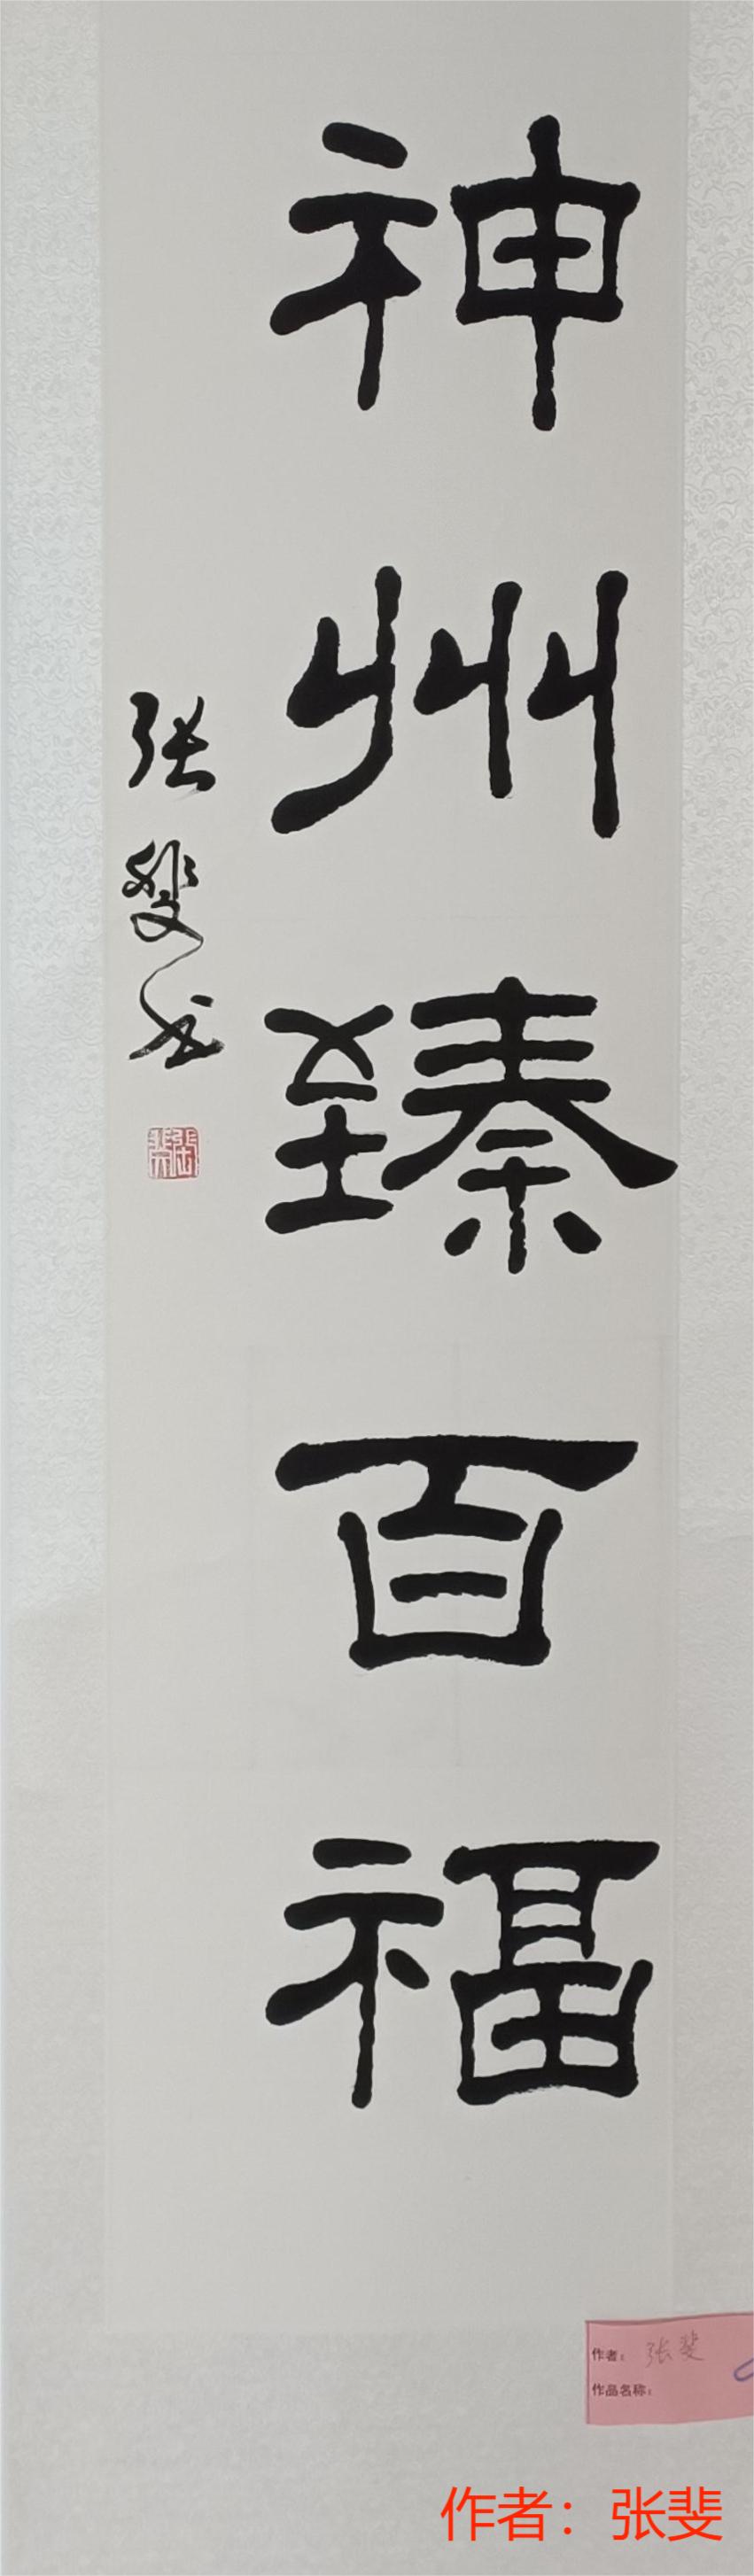 神州臻百福
张斐书
作者： 张斐
作品名称：
作者：张斐